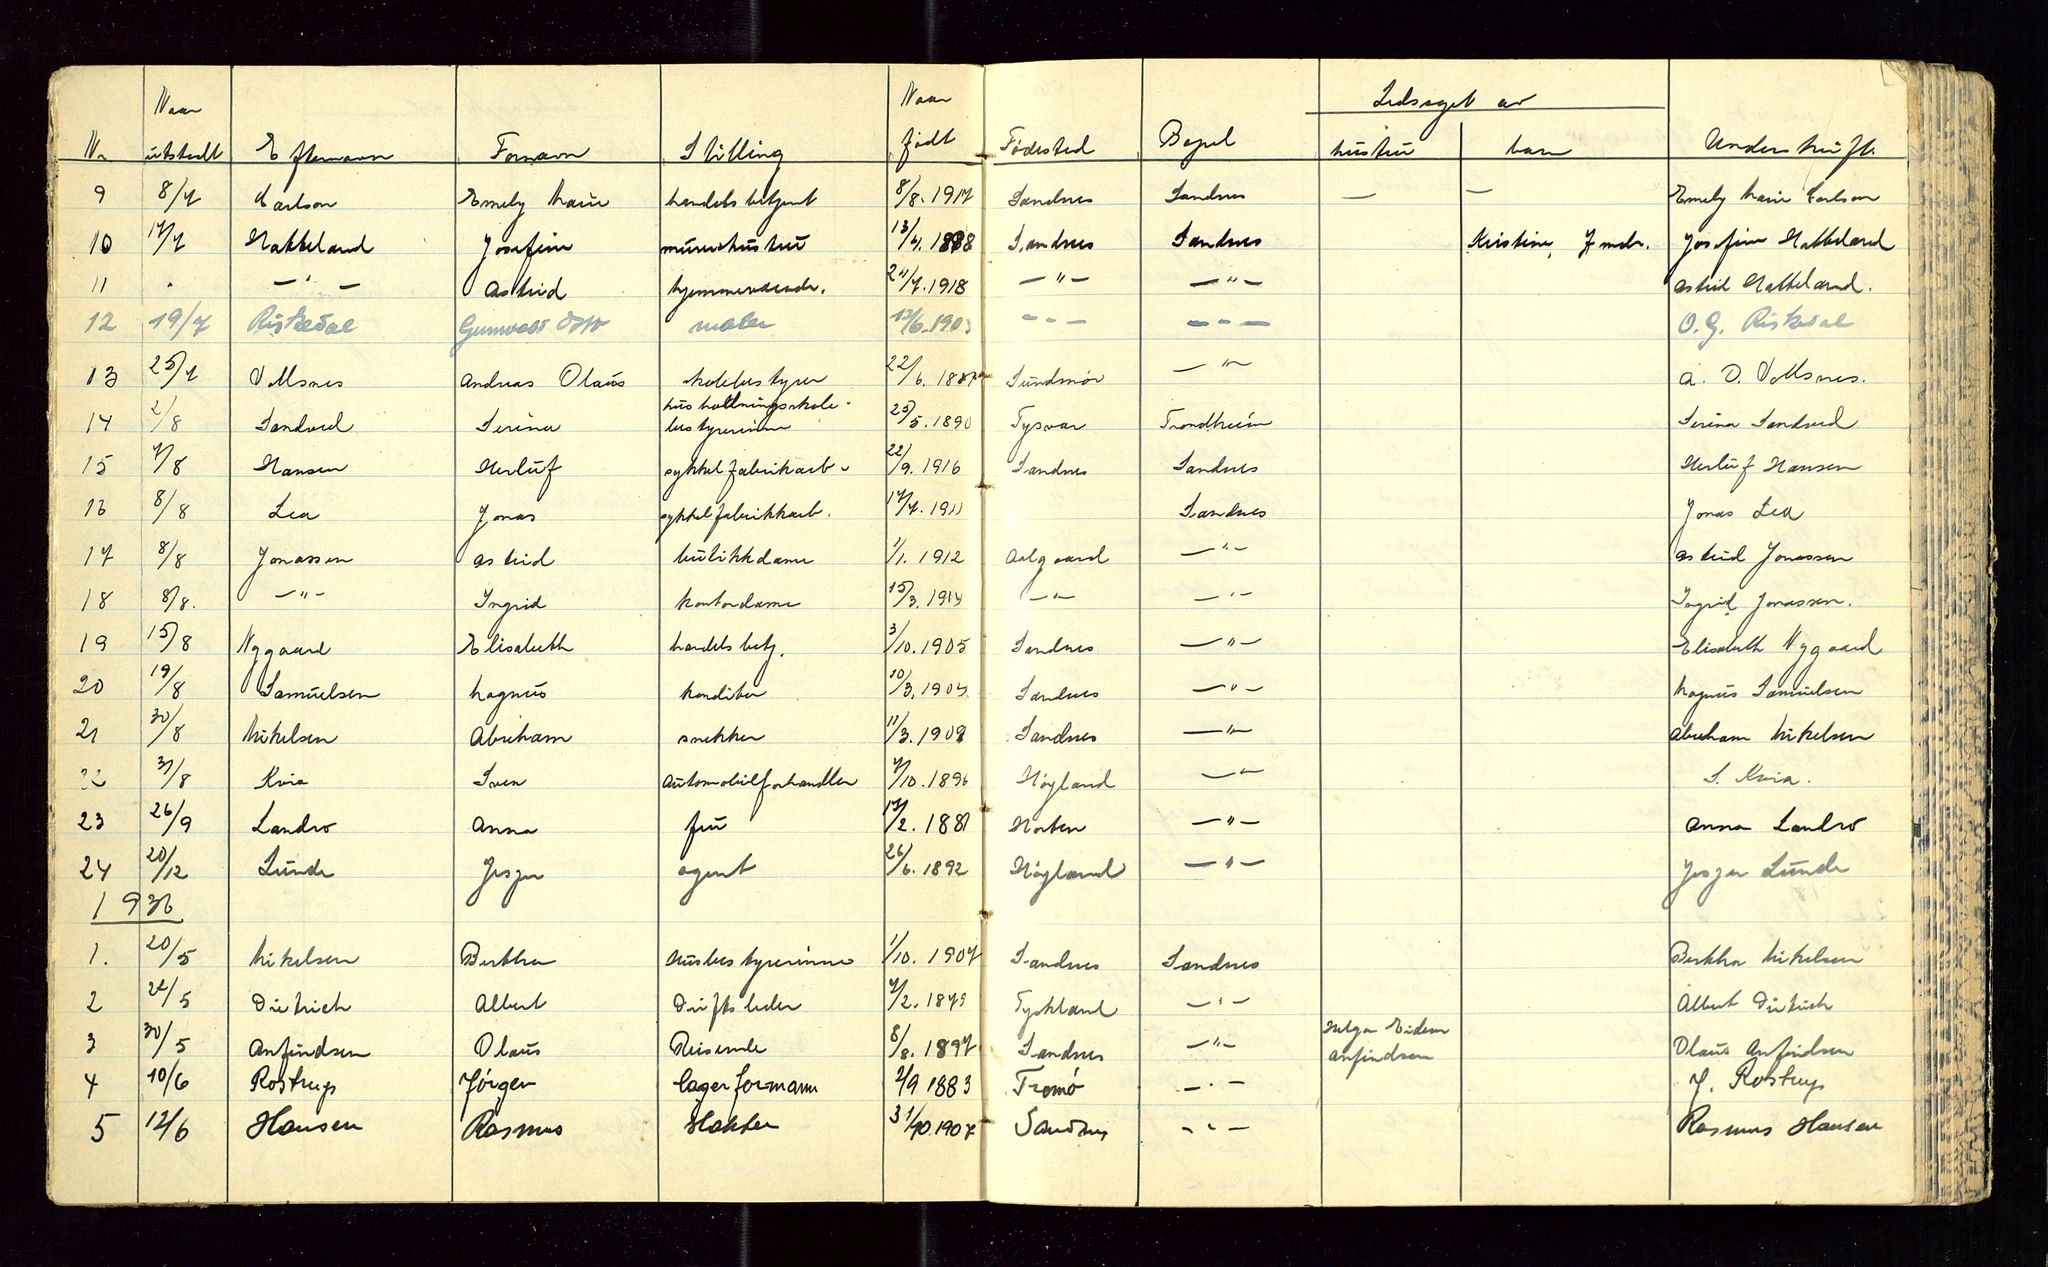 Ledsaget av
Nr. Naar utstedt Efternavn Fornavn Stilling Naar født Fødested Bopel hustru barn Underskrift.
9 8/7 Carlson Emely Marie handelsbetjent 8/8. 1917 Sandnes Sandnes — — Emely Marie Carlson
10 17/7 Hakkeland Josefine murerhustru 13/4. 1888 Sandnes Sandnes Kristine, 7 mdr. Josefine Hakkeland
11 . — " — Astrid hjemmeværende. 24/7. 1918 — " — — " — Astrid Hakkeland.
12 19/7 Riskedal Gunvald Otto maler 12/6. 1903 — " — — " — O. G. Riskedal
13 25/7 Vollsnes Andreas Olaus skolebestyrer 22/6. Sundmør — " — A. O. Vollsnes.
14 2/8 Sandved Serina husholdningsskolebestyrerinne 25/5. 1890 Tysvær Trondheim Serina Sandved
15 7/8 Hansen Herluf sykkelfabrikarb. 22/9. 1916 Sandnes Sandnes Herluf Hansen
16 8/8 Lea Jonas sykkelfabrikkarb. 17/7. 1911 Sandnes Jonas Lea
17 8/8 Jonassen Astrid butikkdame 1/1. 1912 Aalgaard — " — Astrid Jonassen
18 8/8. — " — Ingrid kontordame 15/3. 1914 — " — — " — Ingrid Jonassen.
19 15/8 Nygaard Elisabeth handelsbetj. 3/10. 1905 Sandnes — " — Elisabeth Nygaard
20 19/8 Samuelsen Magnus konditor 10/3. 1904 Sandnes — " — Magnus Samuelsen
21 30/8 Mikelsen Abraham snekker 11/3. 1909 Sandnes — " — Abraham Mikelsen
22 31/8 Kvia Sven Automobilforhandler 7/10. 1896 Høyland — " — S. Kvia.
23 26/9 Landrø Anna fru 17/2. 1881 Horten — " — Anna Landrø
24 20/12 Lunde Jesper agent 26/6. 1892 Høyland — " — Jesper Lunde
1936
1. 20/5 Mikelsen Berthe Husbestyrerinne 1/10. 1907 Sandnes Sandnes Berthe Mikelsen
2 22/5 Dietrich Albert Driftsleder 7/2. 1879 Tyskland — " — Albert Dietrich
3 30/5 Anfindsen Olaus Reisende 8/8. 1897 Sandnes — " — Helga Anfindsen Olaus Anfindsen
4 10/6 Rostrup Jørgen lagerformann 2/9 1883 Tromø — " — J. Rostrup
5 12/6 Hansen Rasmus Slakter 31/10. 1907 Sandnes — " — Rasmus Hansen